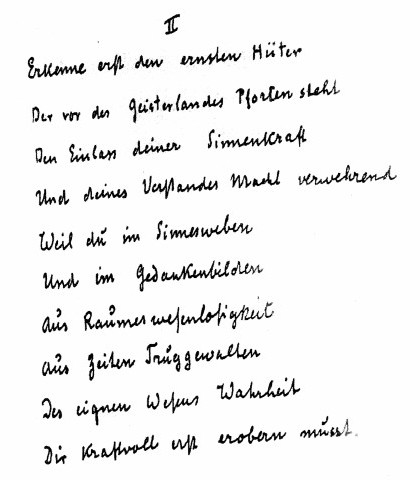 II
Erkenne erst den ernsten Hüter
Der vor des Geisterlandes Pforten steht
Den Einlass deiner Sinnenkraft
Und deines Verstandes Macht verwehrend
Weil du im Sinnesweben
Und im Gedankenbilden
Aus Raumeswesenlosigkeit
Aus Zeiten Truggewalten
Des eignen Wesens Wahrheit
Dir kraftvoll erst erobern musst.